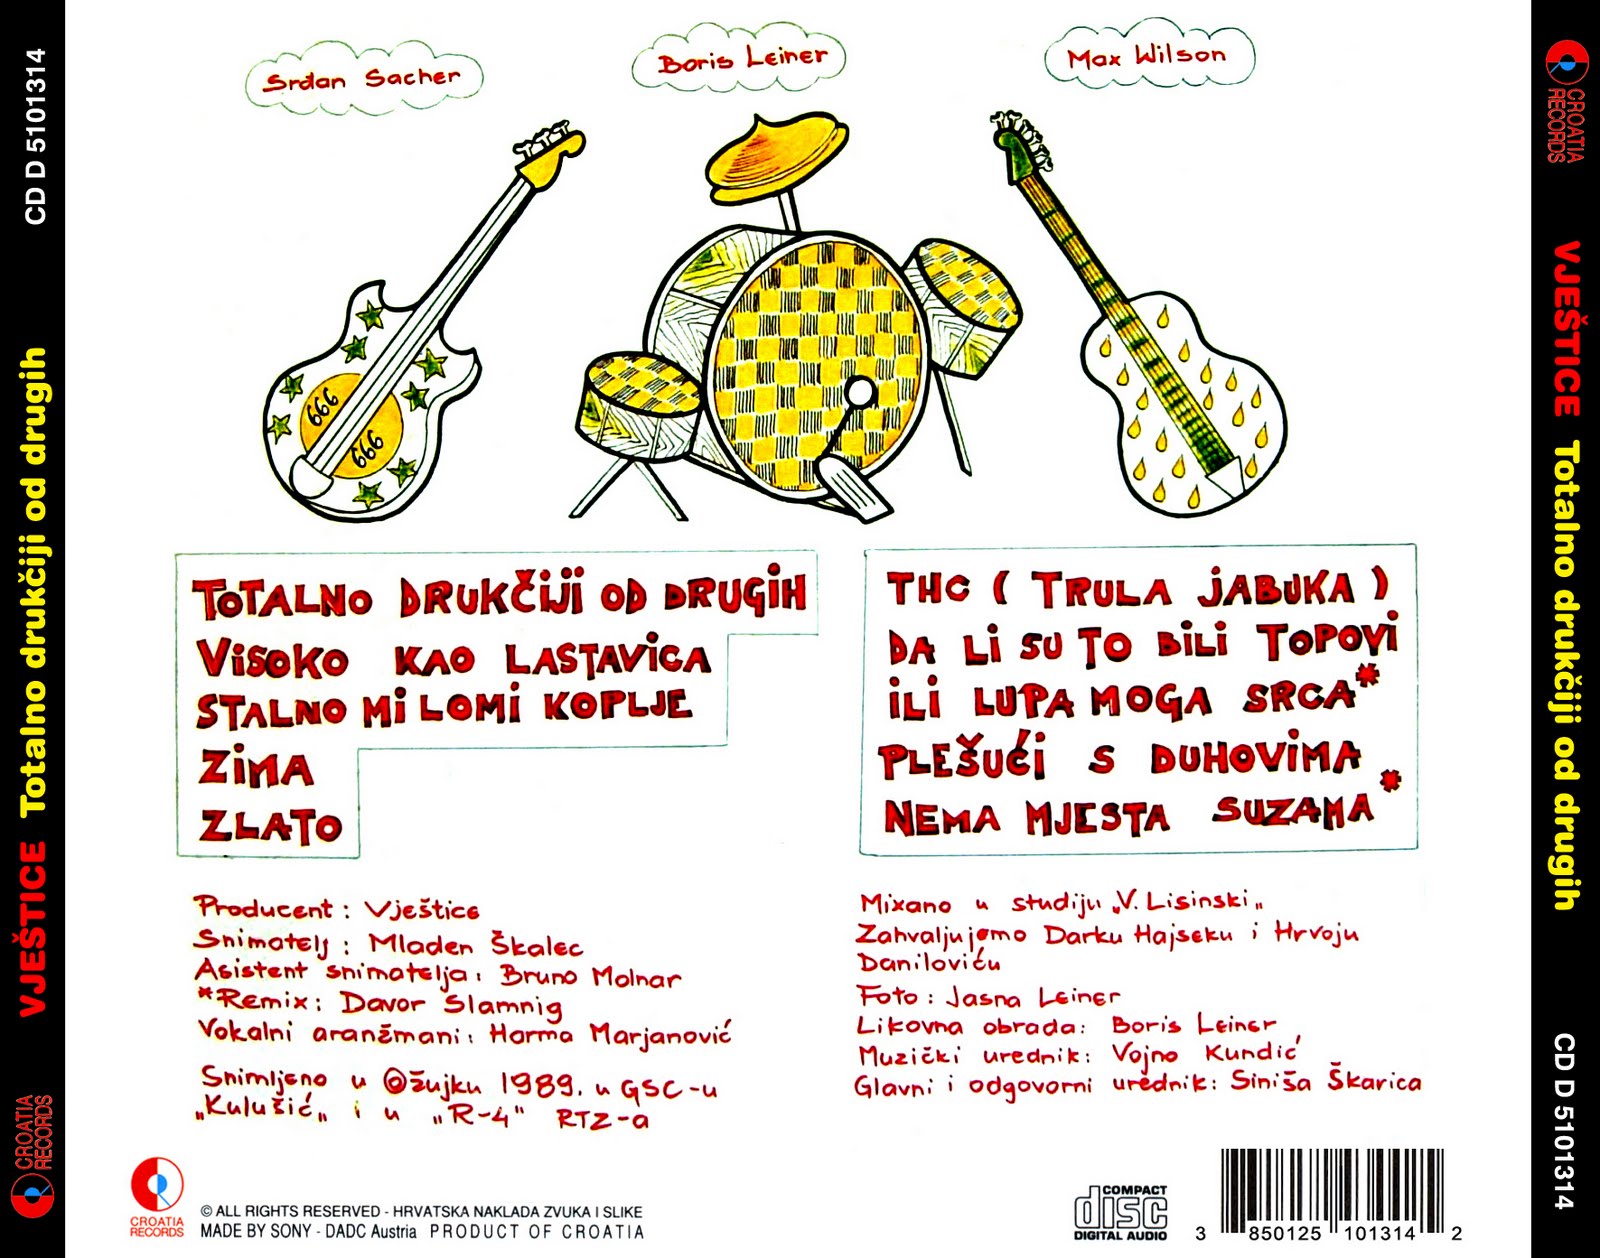 CD D 5101314
VJEŠTICE Totalno drukčiji od drugih
CROATIA
RECORDS
Srdan Sacher
Boris Leiner
Max Wilson
666
666
TOTALNO DRUKČIJI OD DRUGIH
VISOKO KAO LASTAVICA
STALNO MI LOMI KOPLJE
ZIMA
ZLATO
THC ( TRULA JABUKA )
DA LI SU TO BILI TOPOVI
ILI LUPA MOGA SRCA*
PLEŠUĆI S DUHOVIMA
NEMA MJESTA SUZAMA*
Producent : Vještice
Snimatelj : Mladen Škalec
Asistent snimatelja: Bruno Molnar
*Remix: Davor Slamnig
Vokalni aranžmani: Harma Marjanović
Snimljeno u Ožujku 1989. u GSC-u
„Kulušić„ i u „R-4" RTZ-a
Mixano u studiju „V. Lisinski„
Zahvaljujemo Darku Hajseku i Hrvoju
Daniloviću
Foto : Jasna Leiner
Likovna obrada: Boris Leiner
Muzički urednik: Vojno Kundić
Glavni i odgovorni urednik: Siniša Škarica
CROATIA
RECORDS
© ALL RIGHTS RESERVED - HRVATSKA NAKLADA ZVUKA I SLIKE
MADE BY SONY - DADC Austria PRODUCT OF CROATIA
COMPACT
disc
DIGITAL AUDIO
3 850125 101314 2
CROATIA
RECORDS
VJEŠTICE Totalno drukčiji od drugih
CD D 5101314